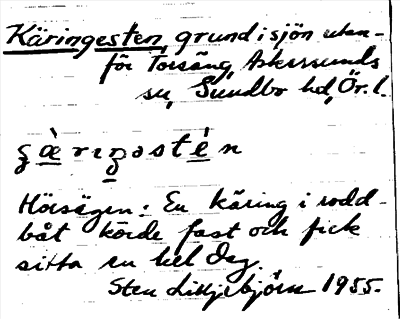 Käringesten, grund i sjön utan-
för Torsäng, Askersunds
sn, Sundbo hd, Ör. l.
Hörsägen: En käring i rodd-
båt körde fast och fick
sitta en hel dag.
Sten Liljebjörn 1955.